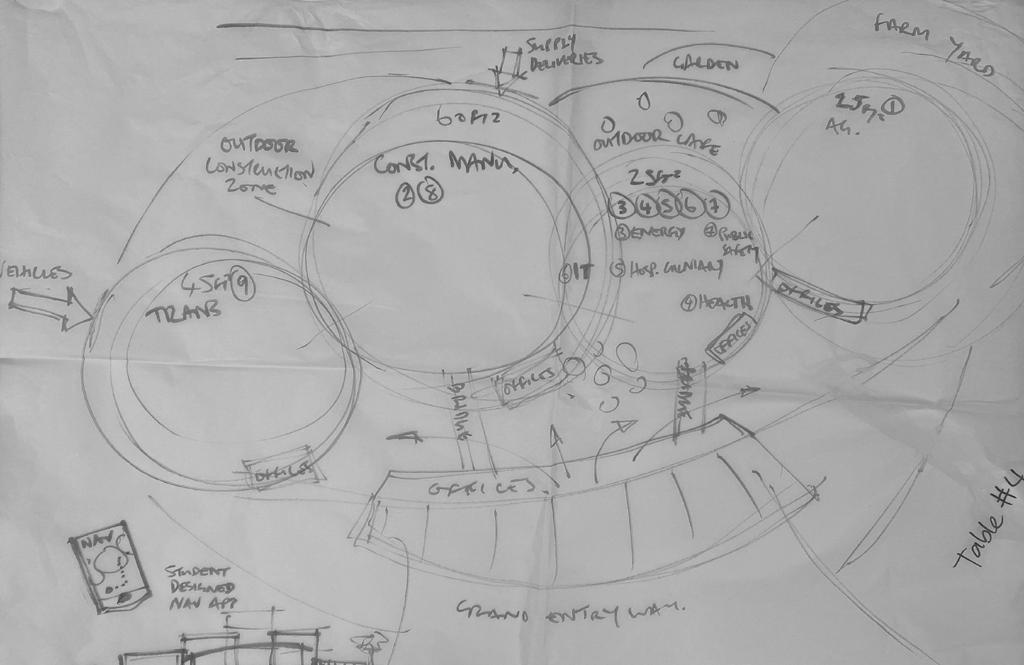 SUPPLY
DELIVERIES
GARDEN
FARM YARD
OUTDOOR
CONSTRUCTION
ZONE
CONST. MANU.
② ⑧
OUTDOOR CAFE
③ ④ ⑤ ⑥ ⑦
③ ENERGY
⑦ PUBLIC
SAFETY
⑥ IT
④ HEALTH
①
AG.
OFFICES
VEHICLES
⑨
TRANS
OFFICES
OFFICES
OFFICES
AWNING
OFFICES.
GRAND ENTRY WAY.
NAV
STUDENT
DESIGNED
NAV APP
Table #4